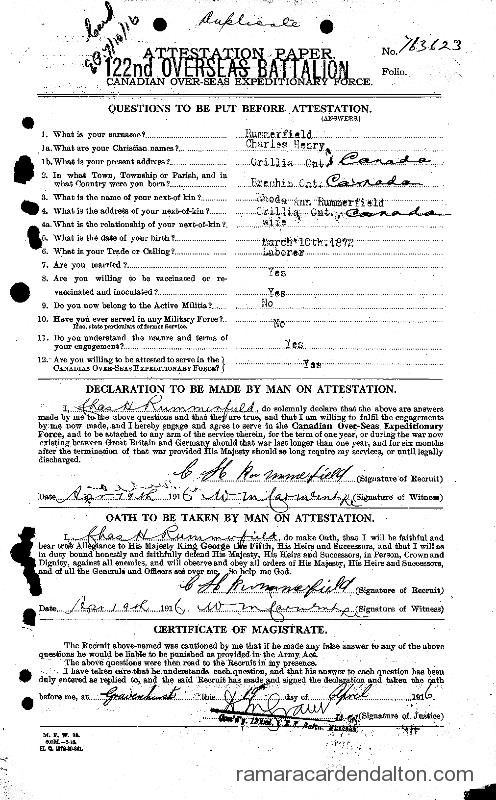 Duplicate
ATTESTATION PAPER. No. 763623
122nd OVERSEAS BATTALION Folio.
CANADIAN OVER-SEAS EXPEDITIONARY FORCE.
QUESTIONS TO BE PUT BEFORE ATTESTATION.
(ANSWERS.)
1. What is your surname? Rummerfield
1a. What are your Christian names? Charles Henry
1b. What is your present address? Orillia Ont. Canada
2. In what Town, Township or Parish, and in
what Country were you born? Brechin Ont. Canada
3. What is the name of your next-of kin? Rhoda Ann Rummerfield
4. What is the address of your next-of-kin? Orillia Ont. Canada
4a. What is the relationship of your next-of-kin? Wife
5. What is the date of your birth? March 10th. 1872
6. What is your Trade or Calling? Laborer
7. Are you married? Yes
8. Are you willing to be vaccinated or re-
vaccinated and inoculated? Yes
9. Do you now belong to the Active Militia? No
10. Have you ever served in any Military Force? No
If so, state particulars of former Service.
11. Do you understand the nature and terms of
your engagement? Yes
12. Are you willing to be attested to serve in the
CANADIAN OVER-SEAS EXPEDITIONARY FORCE? Yes
DECLARATION TO BE MADE BY MAN ON ATTESTATION.
I, Chas H Rummerfield, do solemnly declare that the above are answers
made by me to the above questions and that they are true, and that I am willing to fulfil the engagements
by me now made, and I hereby engage and agree to serve in the Canadian Over-Seas Expeditionary
Force, and to be attached to any arm of the service therein, for the term of one year, or during the war now
existing between Great Britain and Germany should that war last longer than one year, and for six months
after the termination of that war provided His Majesty should so long require my services, or until legally
discharged.
C H Rummerfield (Signature of Recruit)
Date Apr 19th 1916 (Signature of Witness)
OATH TO BE TAKEN BY MAN ON ATTESTATION.
I, Chas H Rummerfield, do make Oath, that I will be faithful and
bear true Allegiance to His Majesty King George the Fifth, His Heirs and Successors, and that I will as
in duty bound honestly and faithfully defend His Majesty, His Heirs and Successors, in Person, Crown and
Dignity, against all enemies, and will observe and obey all orders of His Majesty, His Heirs and Successors,
and of all the Generals and Officers set over me. So help me God.
C H Rummerfield (Signature of Recruit)
Date Apr 19th 1916 (Signature of Witness)
CERTIFICATE OF MAGISTRATE.
The Recruit above-named was cautioned by me that if he made any false answer to any of the above
questions he would be liable to be punished as provided in the Army Act.
The above questions were then read to the Recruit in my presence.
I have taken care that he understands each question, and that his answer to each question has been
duly entered as replied to, and the said Recruit has made and signed the declaration and taken the oath
before me, at Gravenhurst this day of April 1916
(Signature of Justice)
M. F. W. 23.
ramaracardendalton.com